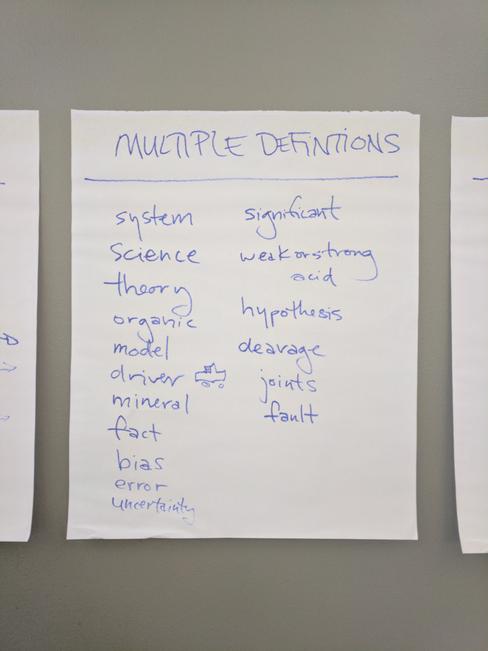 MULTIPLE DEFINTIONS
system
science
theory
organic
model
driver
mineral
fact
bias
error
uncertainty
significant
weak or strong
acid
hypothesis
cleavage
joints
fault